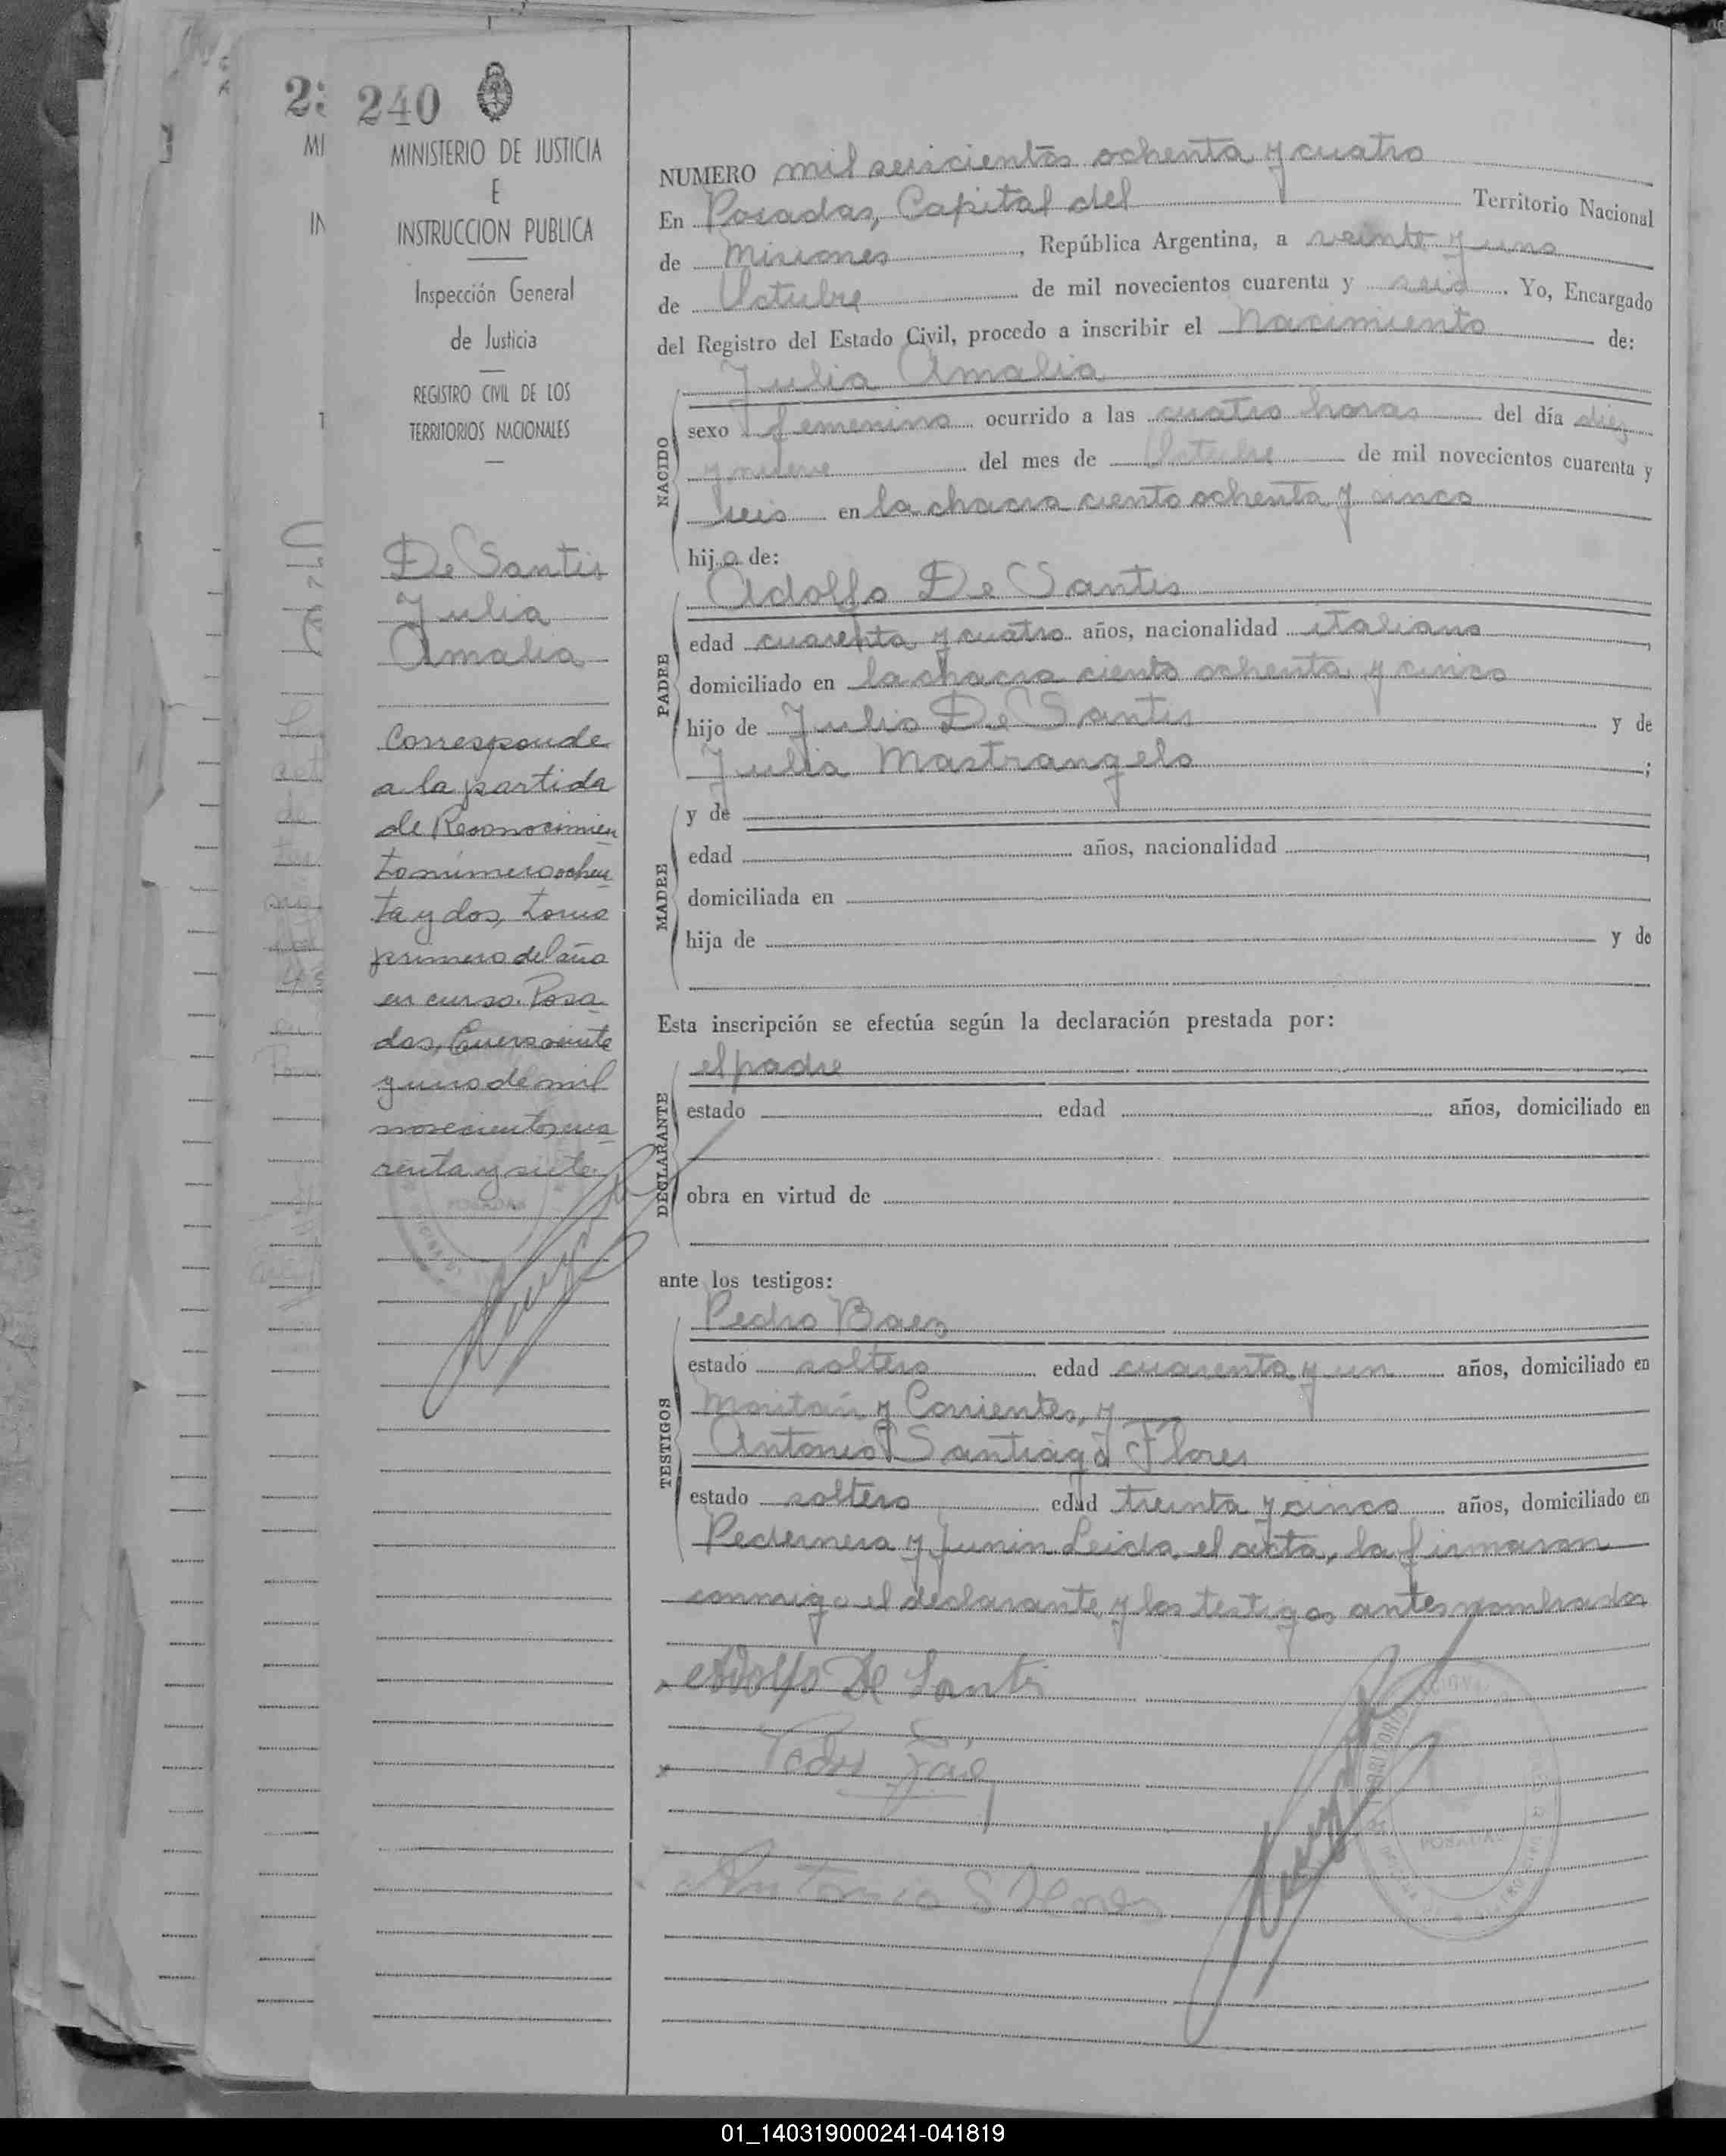 23
240
MI
MINISTERIO DE JUSTICIA
E
IN
INSTRUCCION PUBLICA
Inspección General
de Justicia
REGISTRO CIVIL DE LOS
TERRITORIOS NACIONALES
De Santis
Julia
Amalia
Corresponde
a la partida
de Reconocimien
to número ochen
ta y dos, tomo
primero del año
en curso. Posa
das, Enero veinte
y uno de mil
novecientos cua
renta y siete.
POSADAS
NUMERO mil seiscientos ochenta y cuatro
En Posadas, Capital del Territorio Nacional
de Misiones, República Argentina, a veinte y uno
de Octubre de mil novecientos cuarenta y seis. Yo, Encargado
del Registro del Estado Civil, procedo a inscribir el Nacimiento de:
Julia Amalia
NACIDO
sexo femenino ocurrido a las cuatro horas del día diez
y nueve del mes de Octubre de mil novecientos cuarenta y
seis en la chacra ciento ochenta y cinco
hija de:
Adolfo De Santis
PADRE
edad cuarenta y cuatro años, nacionalidad italiano,
domiciliado en la chacra ciento ochenta y cinco
hijo de Julio De Santis y de
Julia Mastrangelo;
MADRE
y de
edad años, nacionalidad,
domiciliada en
hija de y de
Esta inscripción se efectúa según la declaración prestada por:
el padre
DECLARANTE
estado edad años, domiciliado en
obra en virtud de
ante los testigos:
Pedro Baez
TESTIGOS
estado soltero edad cuarenta y un años, domiciliado en
y Corrientes, y
Antonio Santiago Flores
estado soltero edad treinta y cinco años, domiciliado en
Pedernera y Junin Leida el acta, la firmaron
conmigo el declarante y los testigos antes nombrados
Adolfo De Santis
Antonio S Flores
POSADAS
01_140319000241-041819